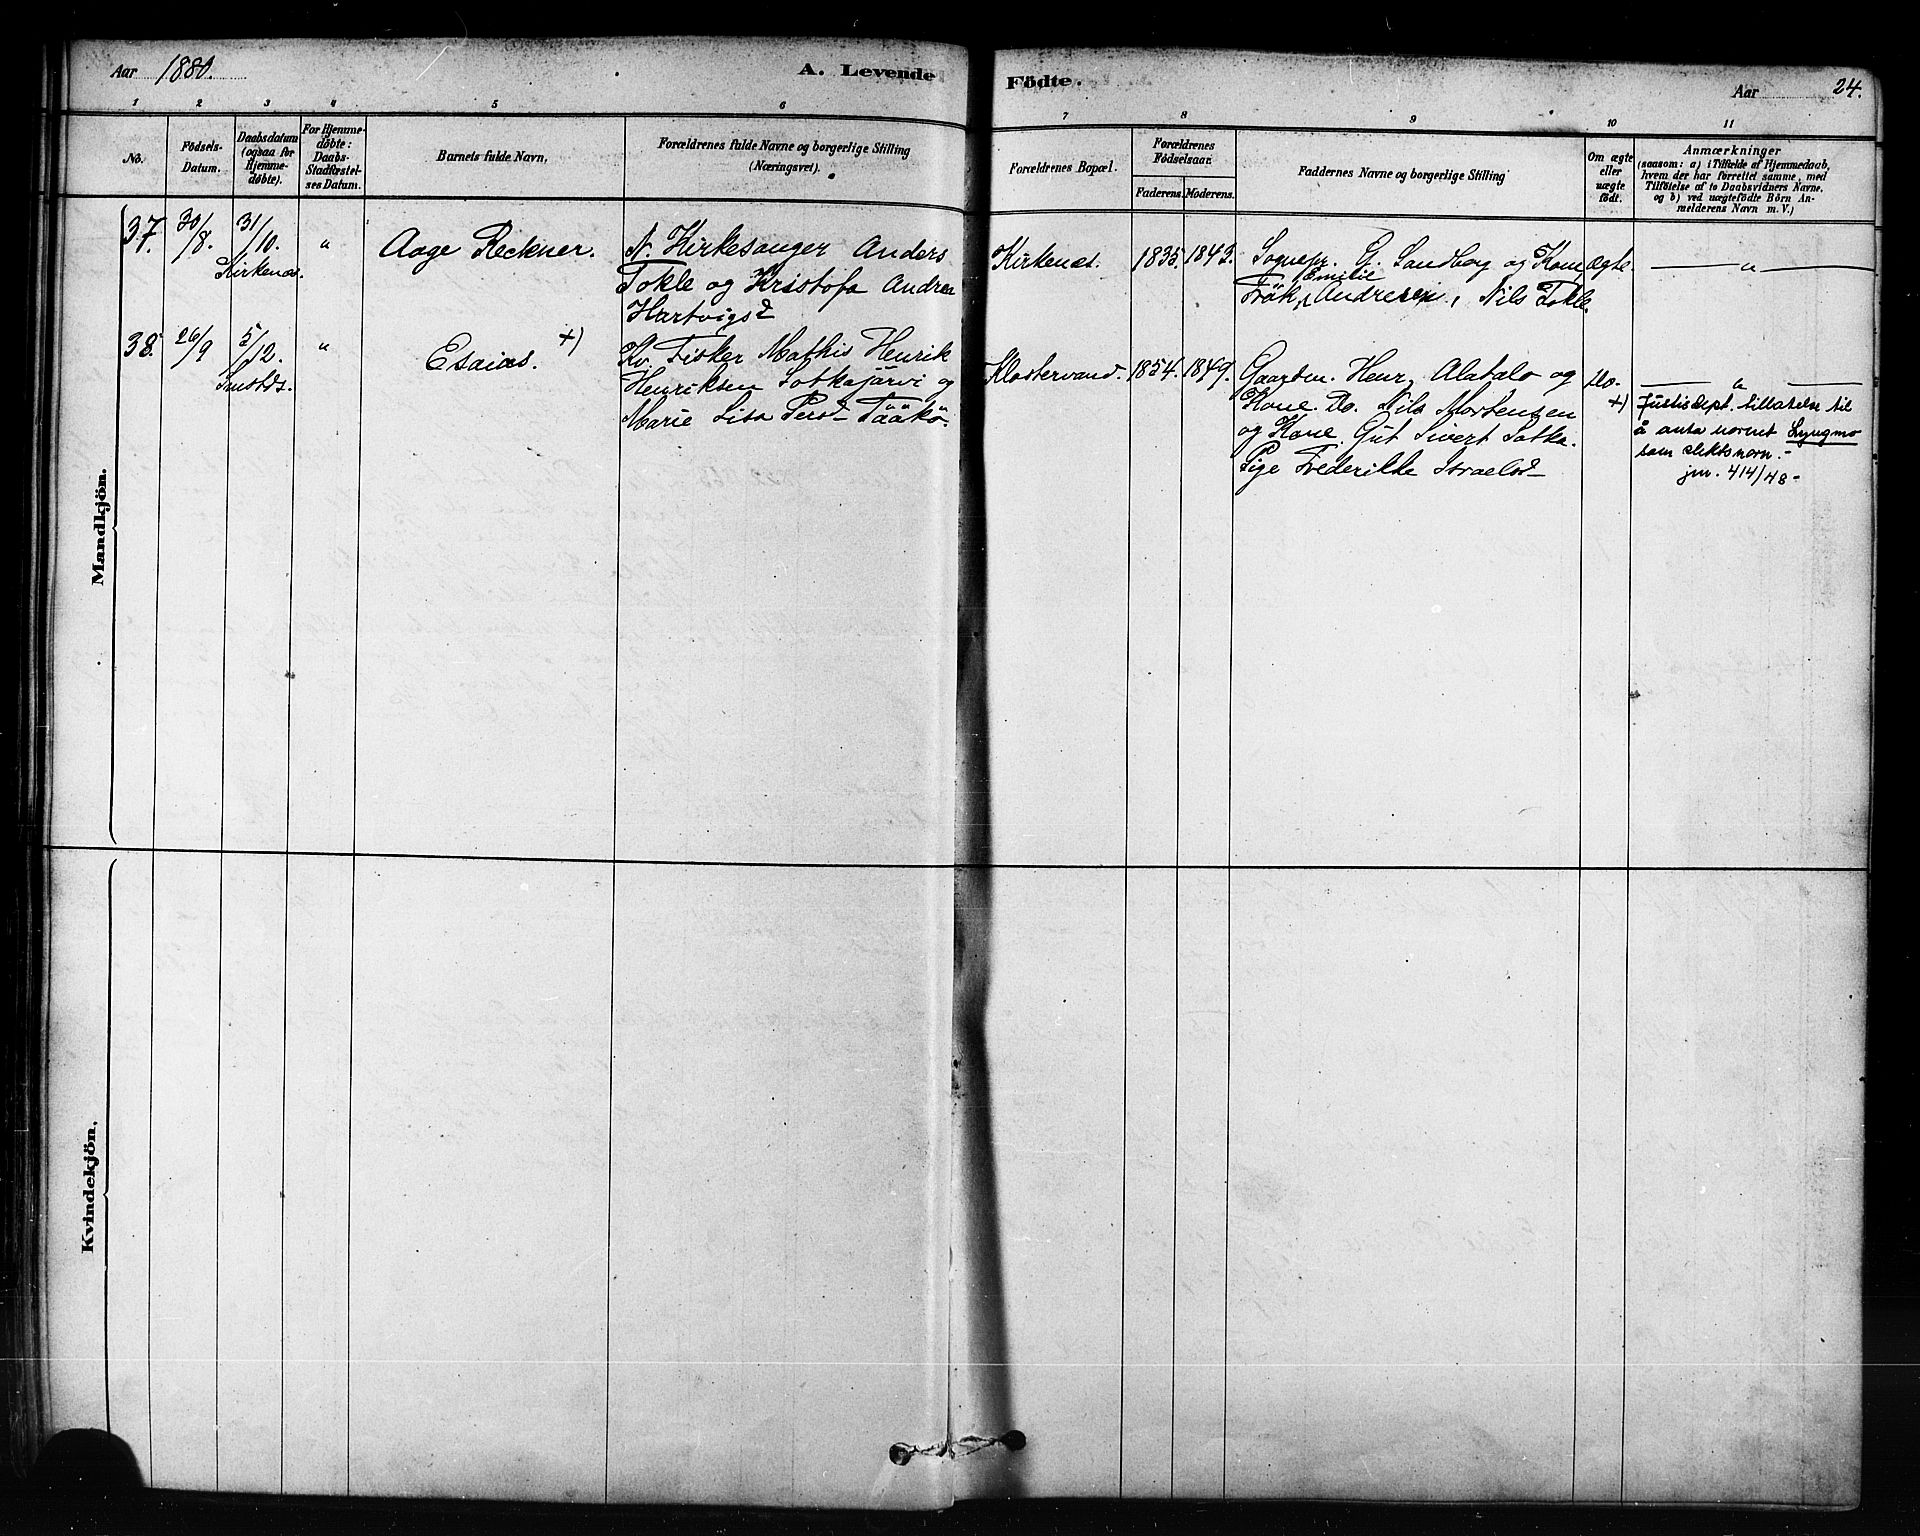 Aar 1880.
A. Levende
Födte.
Aar
24.
1 2 3 4 5 6
7 8 9 10 11
No.
Födsels-
Datum.
Daabsdatum
(ogsaa for
Hjemme-
döbte).
For Hjemme-
döbte:
Daabs-
Stadfæstel-
ses Datum.
Barnets fulde Navn.
Forældrenes fulde Navne og borgerlige Stilling
(Næringsvei).
Forældrenes Bopæl.
Forældrenes
Födselsaar.
Faderens. Moderens.
Faddernes Navne og borgerlige Stilling
Om ægte
eller
uægte
födt.
Anmærkninger
(saasom: a) i Tilfælde af Hjemmedaab,
hvem der har forrettet samme, med
Tilföielse af to Daabsvidners Navne.
og b) ved uægtefödte Börn An-
melderens Navn m. V.)
Mandkjön.
37. 30/8. 31/10. " Aage Reckner. N. Kirkesanger Anders
Kirkenæs.
Tokle og Kristofa Andrea
Hartvigsd
Kirkenæs. 1835. 1843. Sognepr. G. Sandberg og Kone,
Frök. Emilie Andresen, Nils Tokle.
Ægte. — " —
38. 26/9 5/12. " Esaias. +) Kv. Fisker Mathis Henrik
Henriksen Sotkajärvi og
Marie Lisa Persd Tääkö.
Klostervand. 1854. 1849. Gaardm. Henr. Alatalo og
Kone. Do. Nils Mortensen
og Kone. Gut Sivert Sotka.
Pige Frederikke Israelsd
Do. — " —
+) Justisdept. tillatelse til
å anta navnet Lyngmo
som slektsnavn. -
jnr. 414/48 -
Kvindekjön.